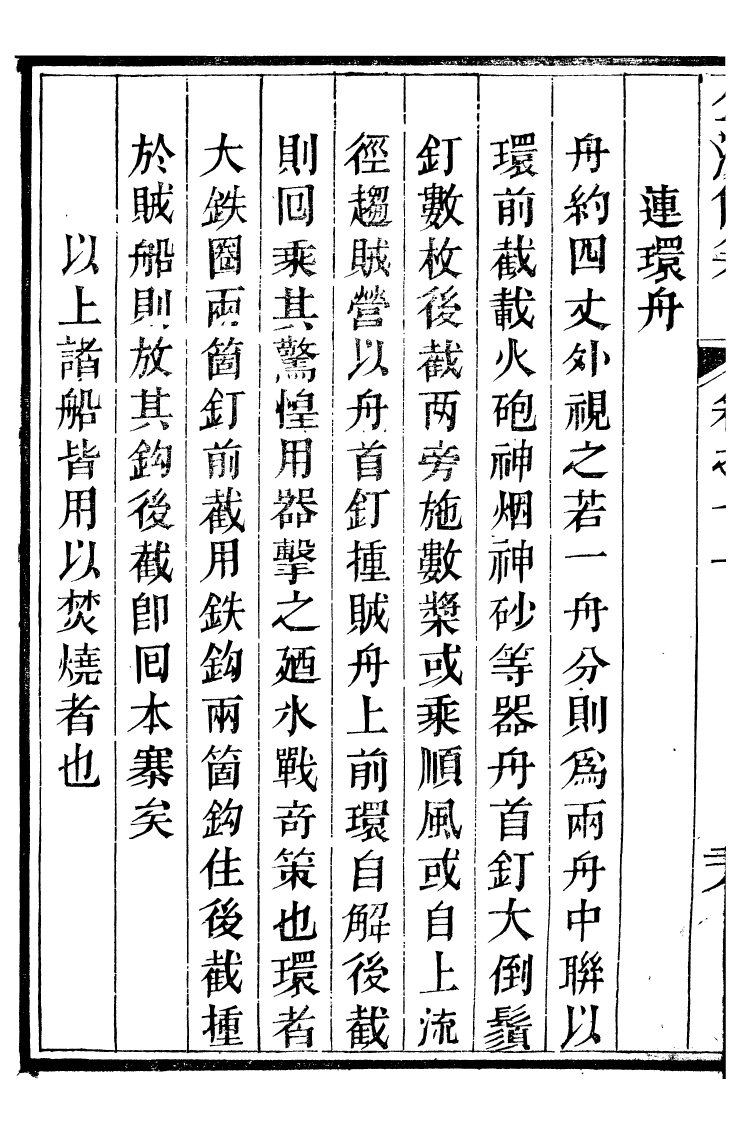 連環舟
舟約四丈外視之若一舟分則為兩舟中聯以
環前截載火砲神烟神砂等器舟首釘大倒鬚
釘數枚後截两旁施數槳或乘順風或自上流
徑趨賊營以舟首釘撞賊舟上前環自解後截
則回乘其驚惶用器擊之廼水戰奇策也環者
大鉄圈兩箇釘前截用鉄鈎兩箇鈎住後截撞
於賊船則放其鈎後截卽回本寨矣
以上諸船皆用以焚燒者也